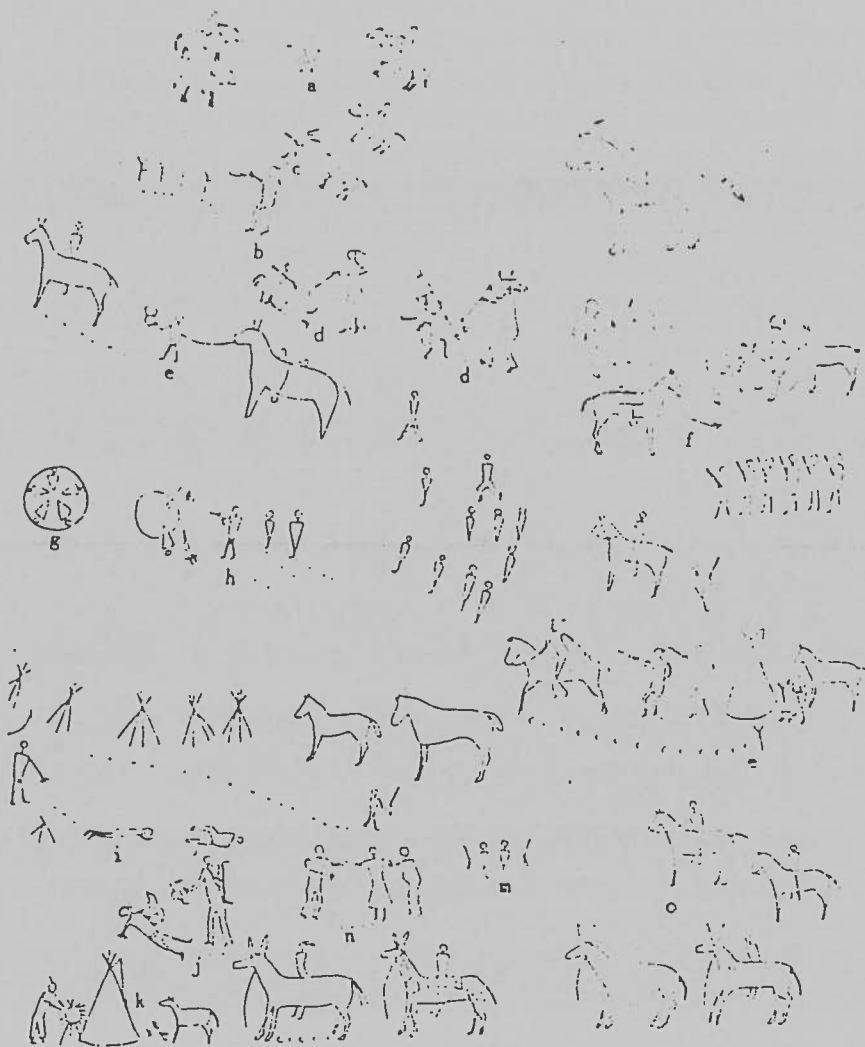 a
c
b
d
d
e
f
g
h
e
i
m
o
n
j
k